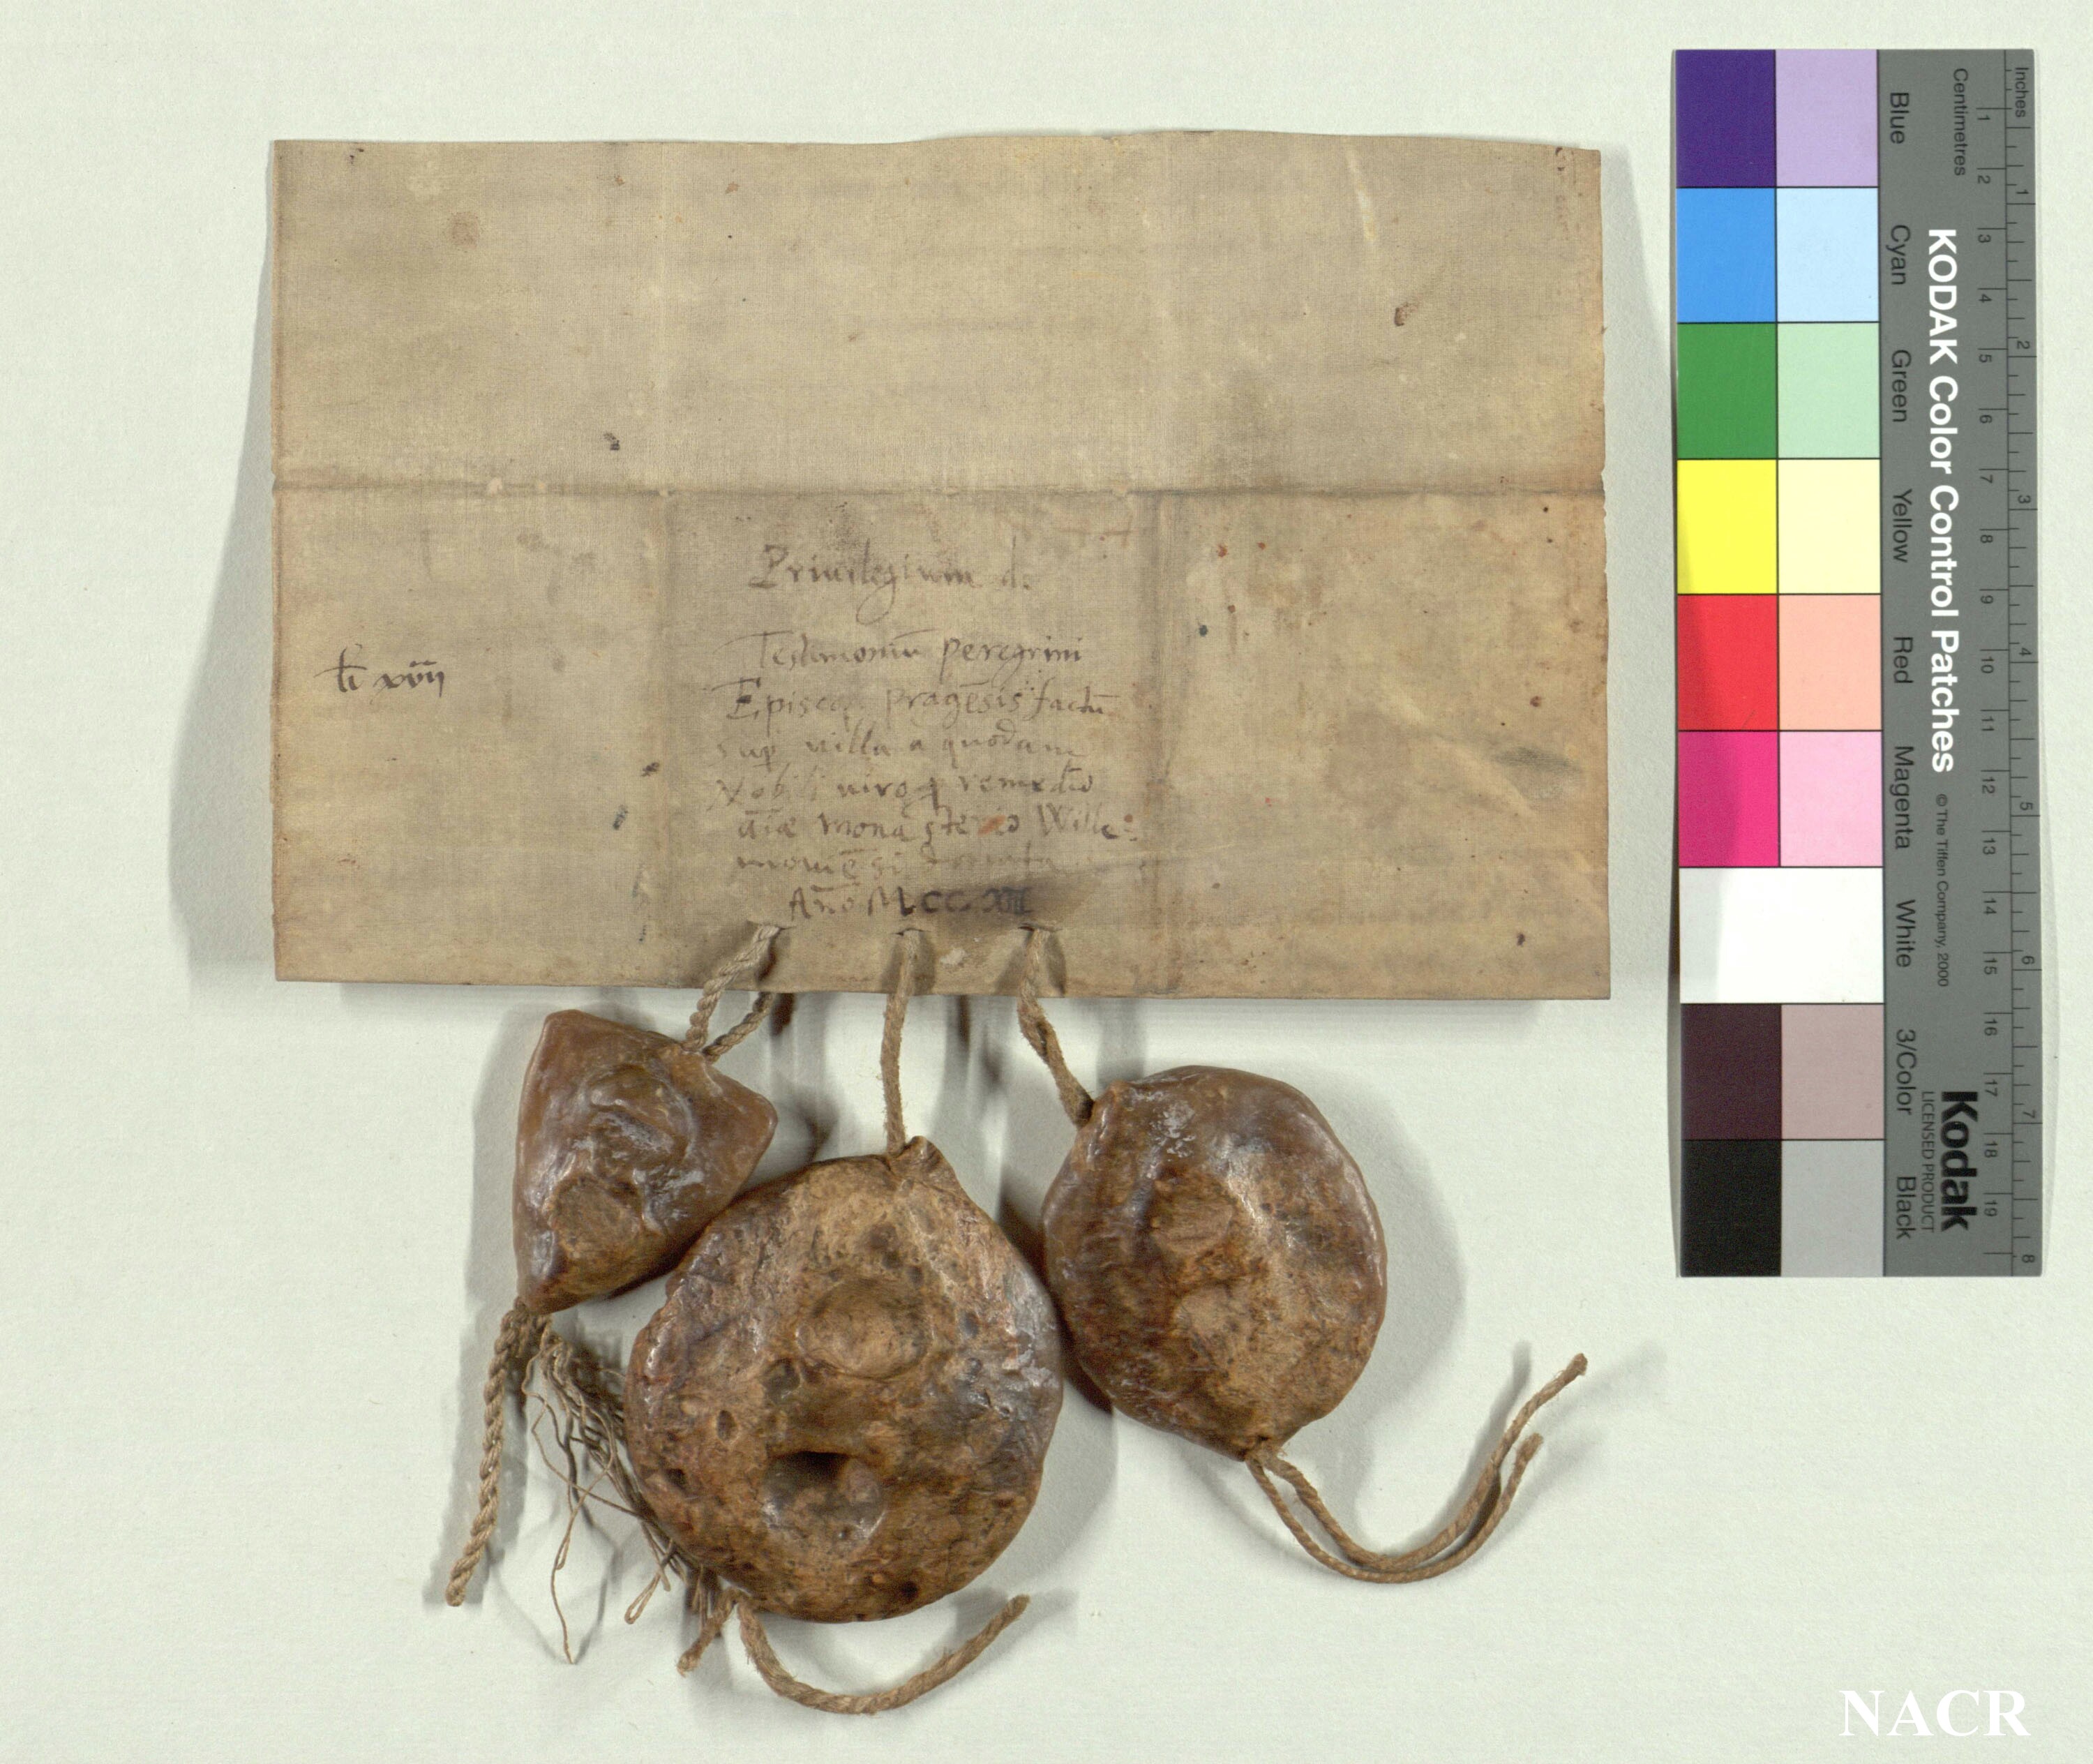 Priuilegium de
Testimoniū peregrini
Episcopi pragēsis factū
sup villa a quodam
Nobili viro ꝓ remedio
aīæ monasterio Wille-
mouēsi donata
Año MCC XIII
xvii
Inches
Centimetres
Blue Cyan Green Yellow Red Magenta White 3/Color Black
KODAK Color Control Patches © The Tiffen Company, 2000
Kodak
LICENSED PRODUCT
1 2 3 4 5 6 7 8 9 10 11 12 13 14 15 16 17 18 19
1 2 3 4 5 6 7 8
NACR